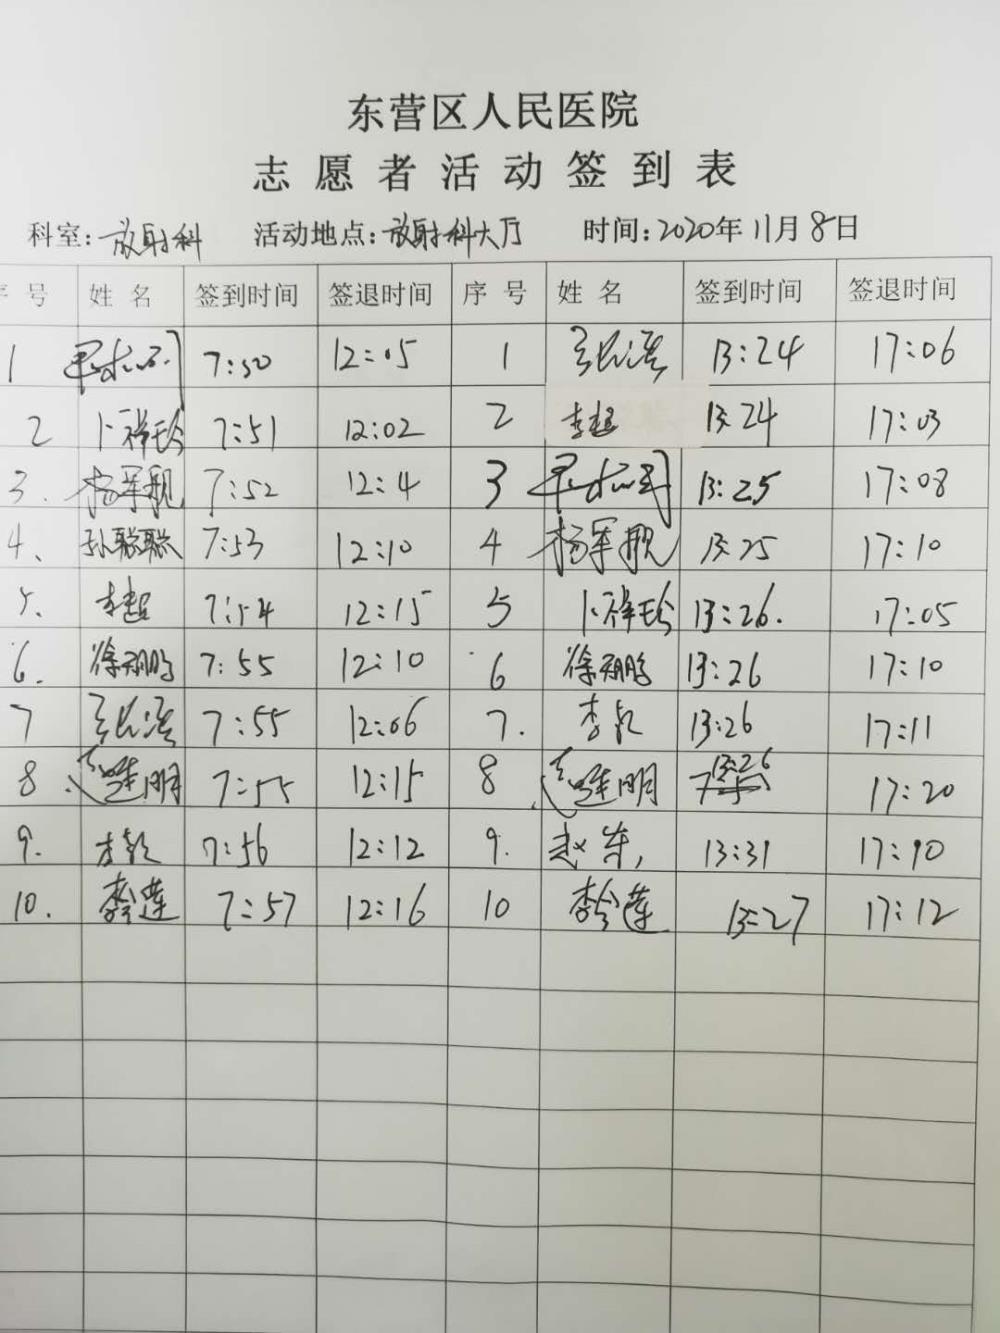 东营区人民医院
志愿者活动签到表
科室:放射科 活动地点:放射科大厅 时间:2020年11月8日
序号 姓名 签到时间 签退时间 序号 姓名 签到时间 签退时间
1 7:50 12:05 1 13:24 17:06
2 卜祥珍 7:51 12:02 2 李超 13:24 17:03
3. 杨军靓 7:52 12:4 3 13:25 17:08
4、 孙聪聪 7:53 12:10 4 杨军靓 13:25 17:10
5、 李超 7:54 12:15 5 卜祥珍 13:26. 17:05
6. 徐翔鹏 7:55 12:10 6 徐翔鹏 13:26 17:10
7 7:55 12:06 7. 13:26 17:11
8 7:55 12:15 8 13:26 17:20
9. 7:56 12:12 9. 赵东 13:31 17:10
10. 李令莲 7:57 12:16 10 李令莲 13:27 17:12